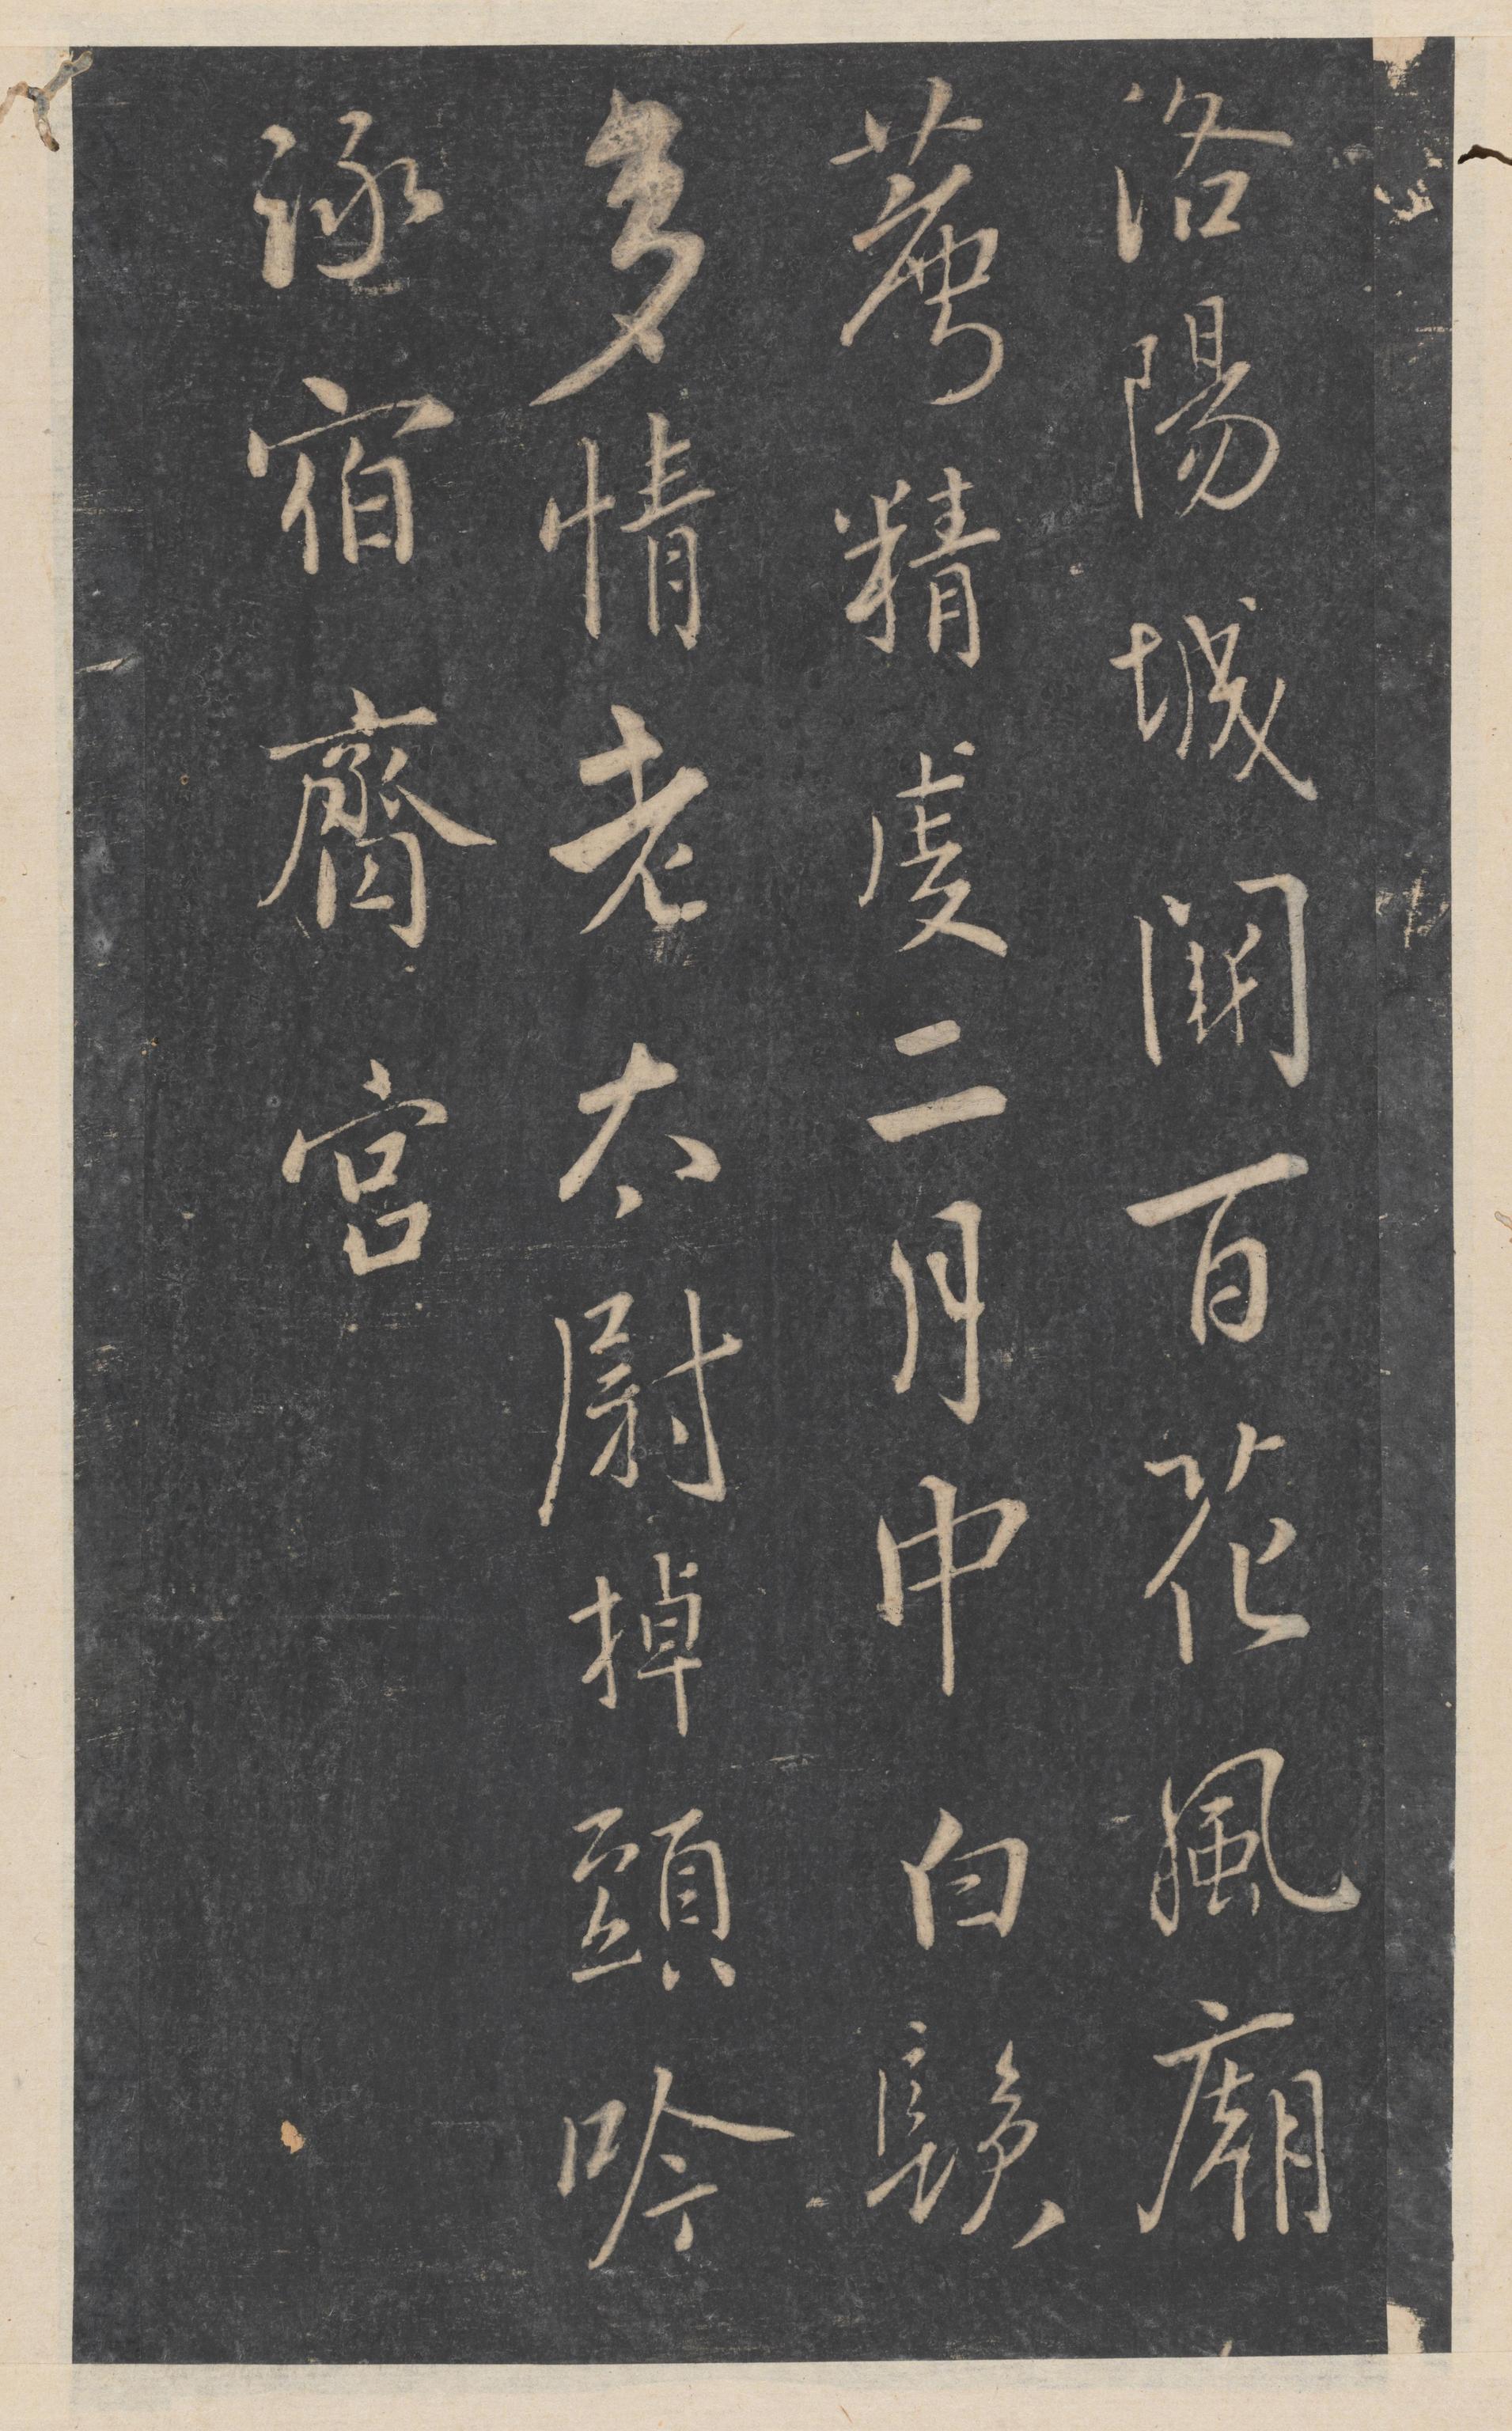 洛陽城闕百花風廟
薦精虔二月中白鬚
多情老太尉掉頭吟
詠宿齋宮